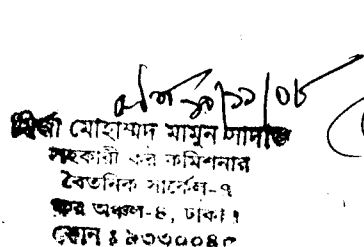 ১৯/১১/০৮
মির্জা মোহাম্মদ মামুন সাদাত
সহকারী কর কমিশনার
বৈতনিক সার্কেল-৭
কর অঞ্চল-৪, ঢাকা।
ফোন : ৯৩৩০০৪৫